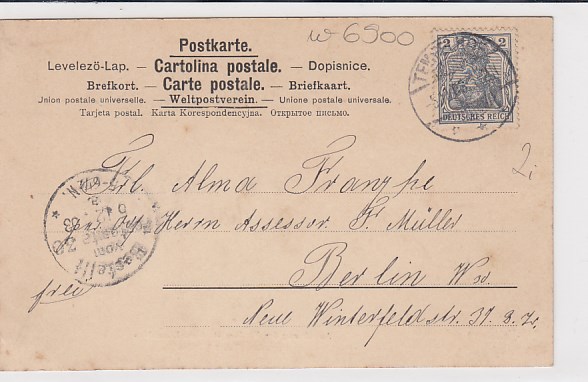 w 6900
Postkarte.
Levelezö-Lap. — Cartolina postale. — Dopisnice.
Brefkort. — Carte postale. — Briefkaart.
Union postale universelle. — Weltpostverein. — Unione postale universale.
Tarjeta postal. Karta Korespondencyjna. Открытое письмо.
2
DEUTSCHES REICH
2
Frl. Alma
Herrn Assessor Fr. Müller
Berlin W
frei
Neue Winterfeldstr. 31.
Bestellt
vom
Postamte